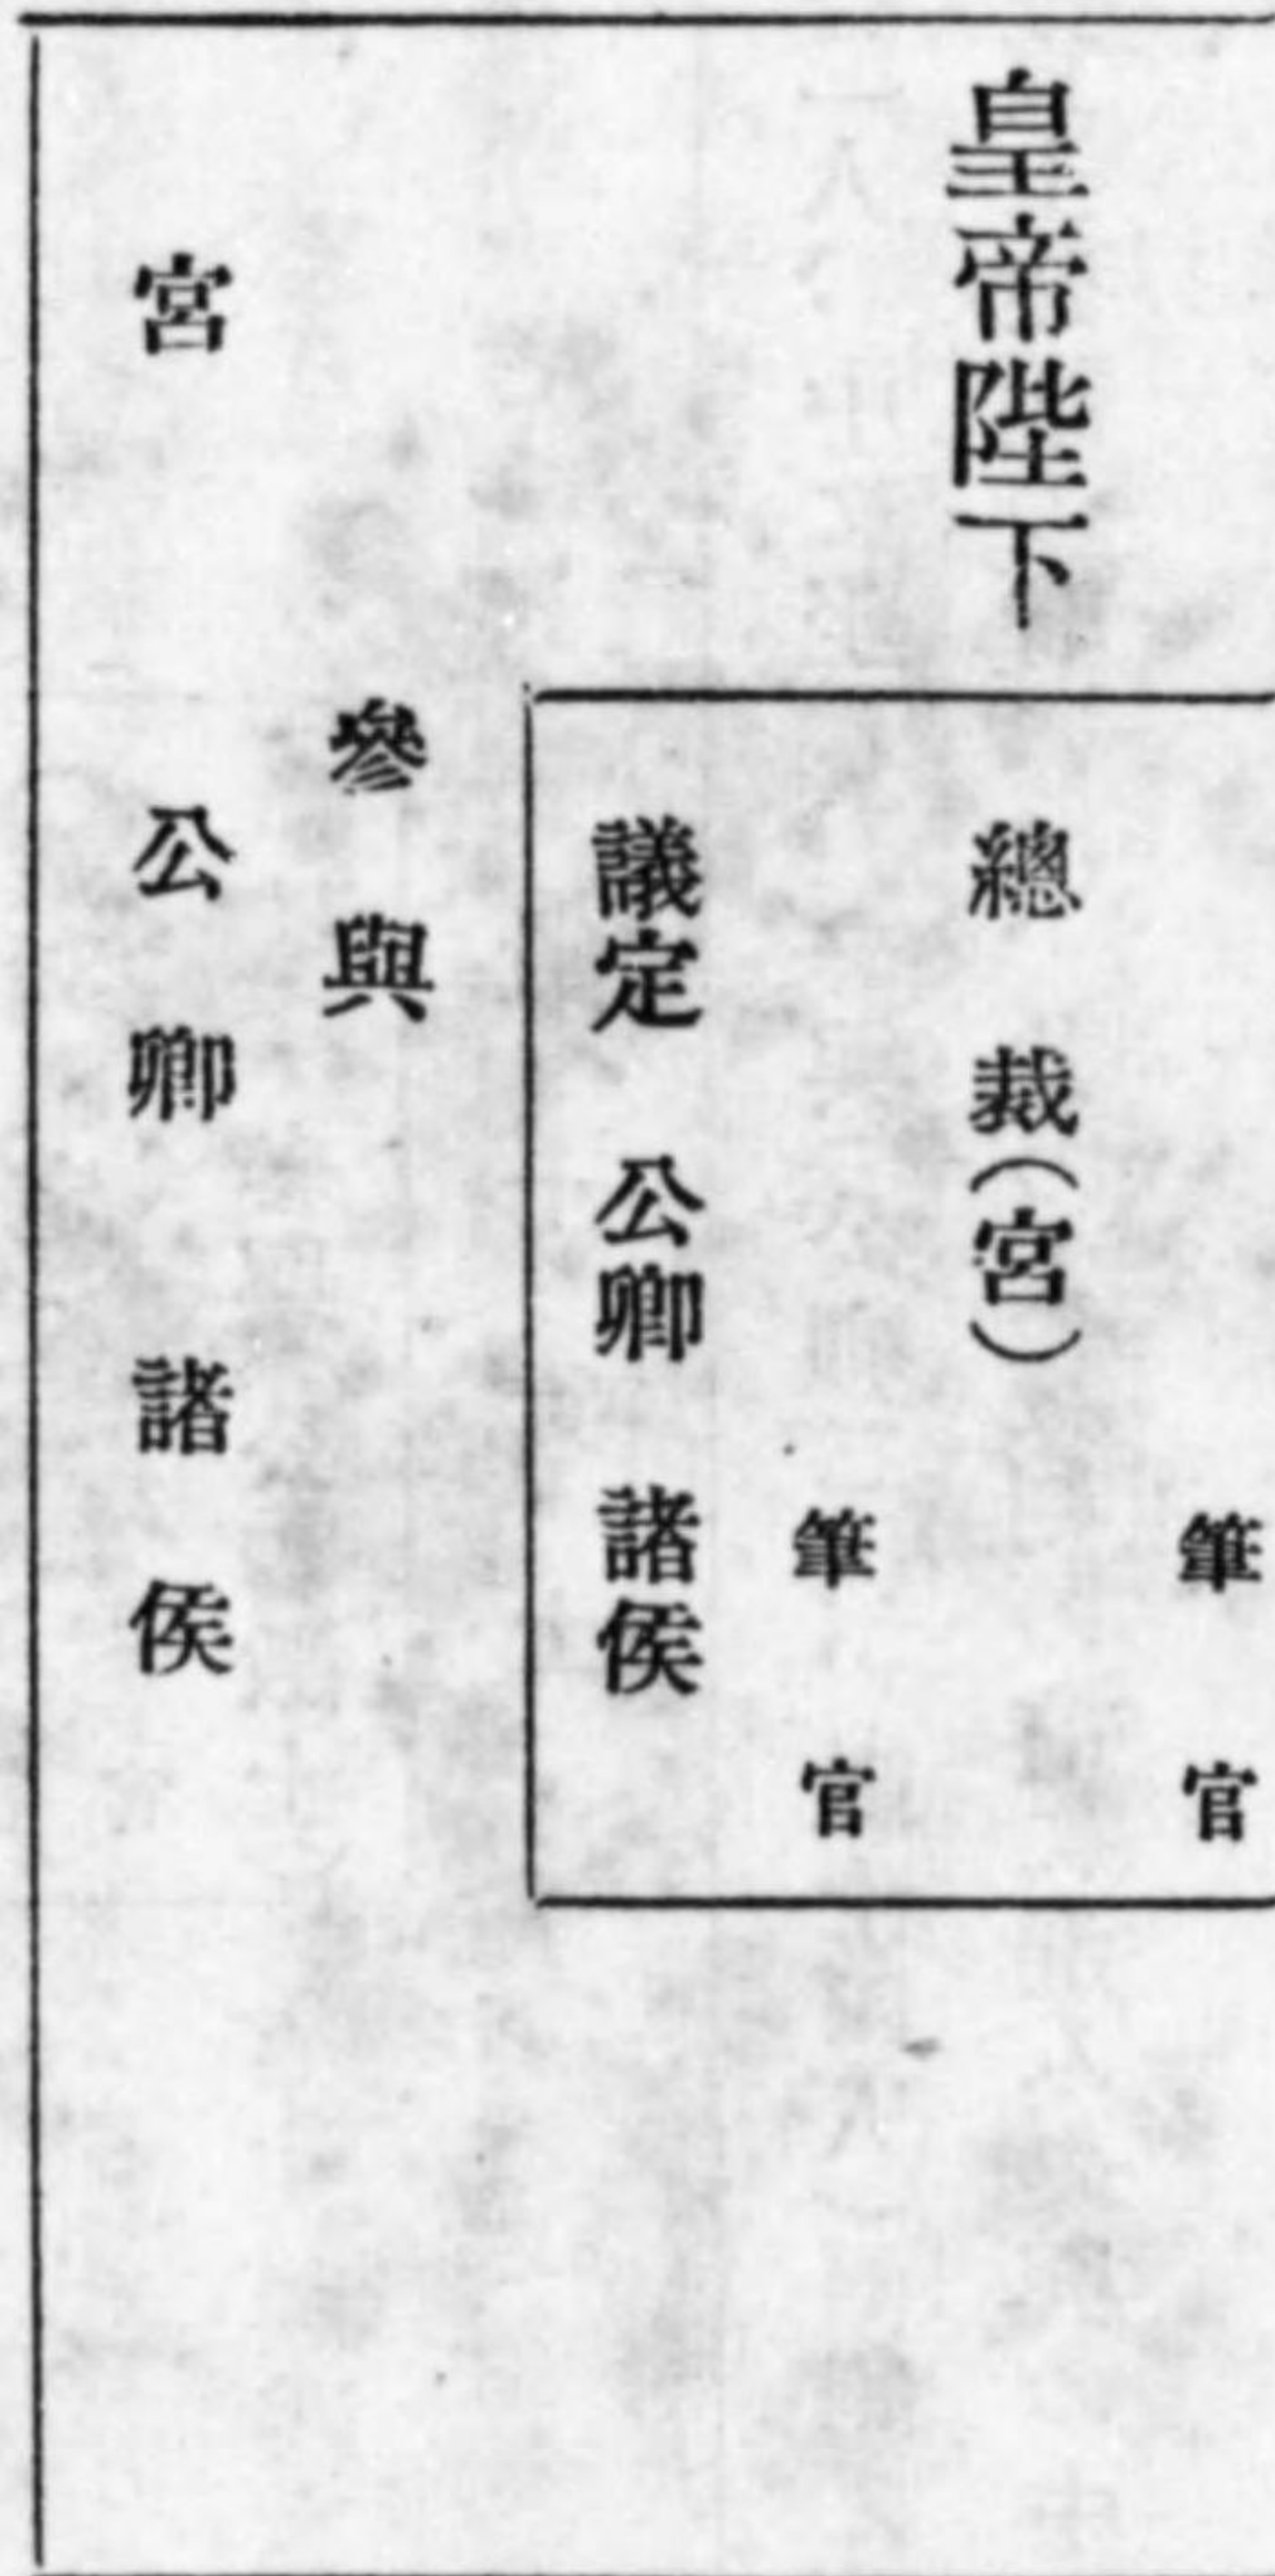 皇帝陛下
筆官
總裁(宮)
筆官
議定 公卿 諸侯
參與
宮 公卿 諸侯